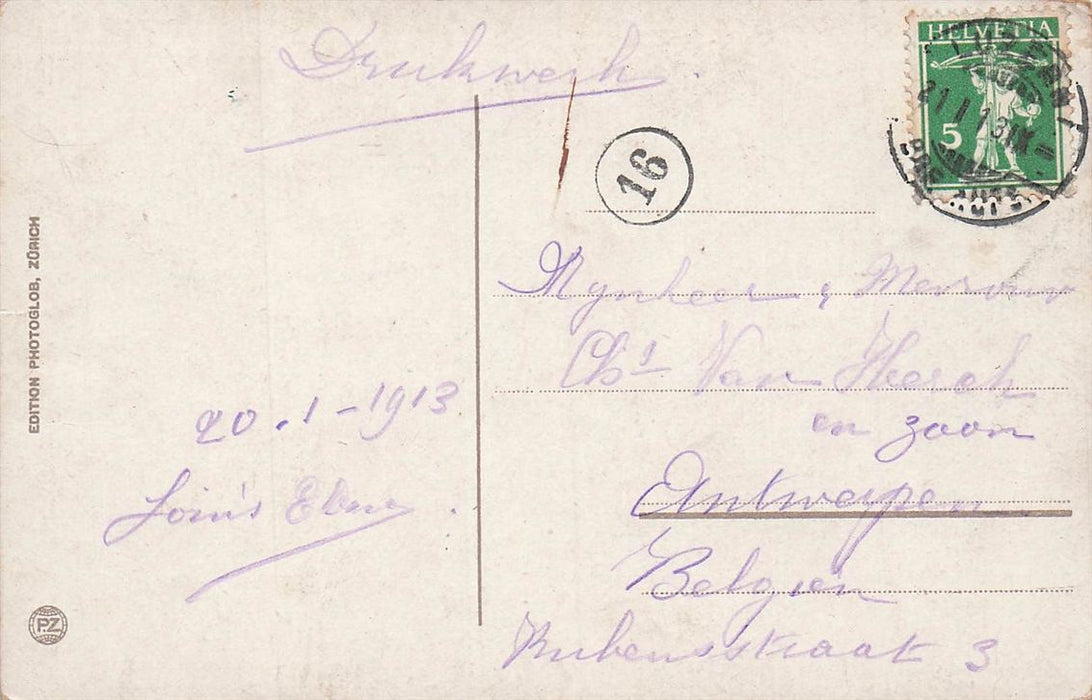 Drukwerk.
HELVETIA
5
16
EDITION PHOTOGLOB, ZÜRICH
Mynheer, Mevrouw
Chs Van
en zoon
Antwerpen
Belgien
Rubensstraat 3
20.1-1913
Louis
P.Z